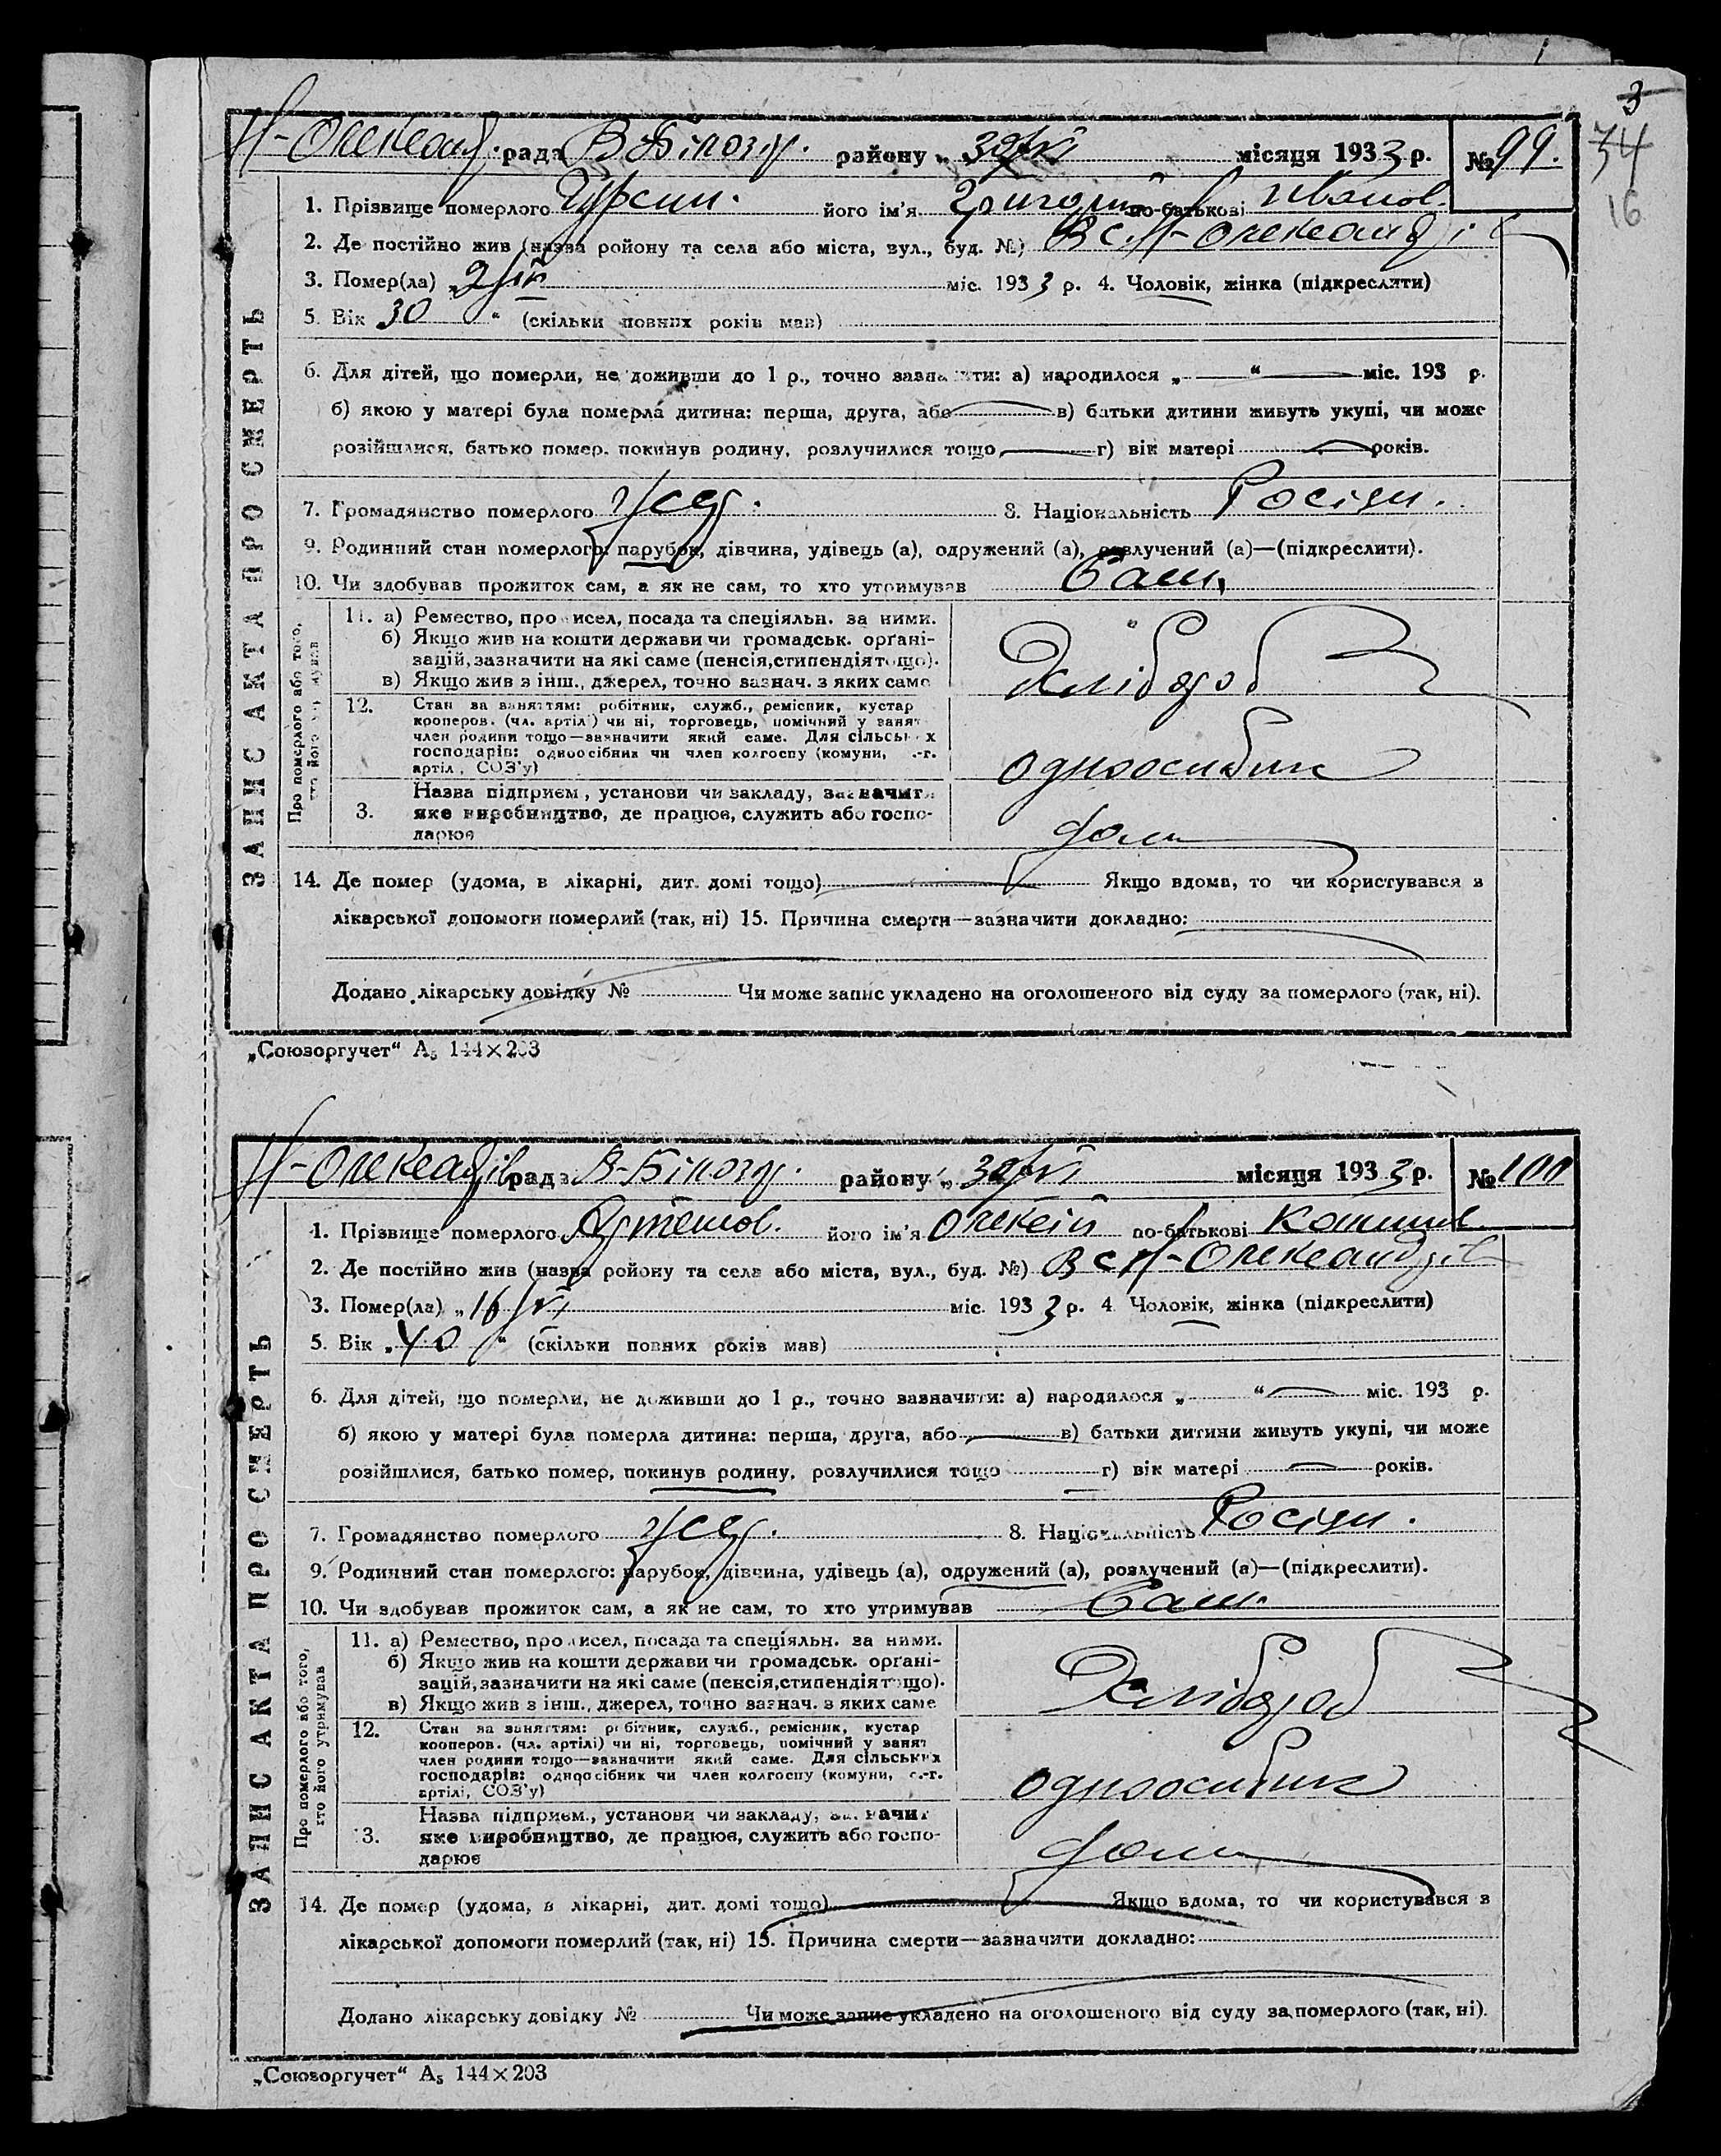 3
34
16
Н-Олександ. рада В-Білозер. району „30/VI місяця 1933 р. № 99.
1. Прізвище померлого Гурсин. його ім'я Григорий по-батькові Иванов.
2. Де постійно жив (назва ройону та села або міста, вул., буд. №) В с. Н-Олександрів
3. Помер(ла) „ міс. 1933 р. 4. Чоловік, жінка (підкреслити)
5. Вік 30 “ (скільки повних років мав)
6. Для дітей, що померли, не доживши до 1 р., точно зазначити: а) народилося „ “ міс. 193 р.
б) якою у матері була померла дитина: перша, друга, або в) батьки дитини живуть укупі, чи може
розійшлися, батько помер, покинув родину, розлучилися тощо г) вік матері років.
7. Громадянство померлого УССР. 8. Національність Росіян.
9. Родинний стан померлого: парубок, дівчина, удівець (а), одружений (а), розлучений (а)—(підкреслити).
10. Чи здобував прожиток сам, а як не сам, то хто утримував Сам.
ЗАПИС АКТА ПРО СМЕРТЬ
Про померлого або того, хто його утримував
11. а) Ремество, промисел, посада та спеціяльн. за ними.
б) Якщо жив на кошти держави чи громадськ. орґані-
зацій, зазначити на які саме (пенсія, стипендія тощо).
в) Якщо жив з інш., джерел, точно зазнач. з яких саме
Хлібороб
12. Стан за заняттям: робітник, служб., ремісник, кустар
кооперов. (чл. артілі) чи ні, торговець, помічний у занят
член родини тощо—зазначити який саме. Для сільських
господарів: одноосібник чи член колгоспу (комуни, с.-г.
артіл, СОЗ'у)
одноосибник
3. Назва підприєм., установи чи закладу, зазначит
яке виробництво, де працює, служить або госпо-
дарює
14. Де помер (удома, в лікарні, дит. домі тощо) дома Якщо вдома, то чи користувався з
лікарської допомоги померлий (так, ні) 15. Причина смерти—зазначити докладно:
Додано лікарську довідку № Чи може запис укладено на оголошеного від суду за померлого (так, ні).
„Союзоргучет“ А₅ 144×203
Н-Олександрів рада В-Білозер. району „30/VI місяця 1933 р. № 100
1. Прізвище померлого його ім'я Олексій по-батькові
2. Де постійно жив (назва ройону та села або міста, вул., буд. №) В с Н-Олександрів
3. Помер(ла) „16/VI міс. 1933 р. 4. Чоловік, жінка (підкреслити)
5. Вік „40 “ (скільки повних років мав)
6. Для дітей, що померли, не доживши до 1 р., точно зазначити: а) народилося „ “ міс. 193 р.
б) якою у матері була померла дитина: перша, друга, або в) батьки дитини живуть укупі, чи може
розійшлися, батько помер, покинув родину, розлучилися тощо г) вік матері років.
7. Громадянство померлого УССР. 8. Національність Росіян.
9. Родинний стан померлого: парубок, дівчина, удівець (а), одружений (а), розлучений (а)—(підкреслити).
10. Чи здобував прожиток сам, а як не сам, то хто утримував Сам.
ЗАПИС АКТА ПРО СМЕРТЬ
Про померлого або того, хто його утримував
11. а) Ремество, промисел, посада та спеціяльн. за ними.
б) Якщо жив на кошти держави чи громадськ. орґані-
зацій, зазначити на які саме (пенсія, стипендія тощо).
в) Якщо жив з інш., джерел, точно зазнач. з яких саме
Хлібороб
12. Стан за заняттям: робітник, служб., ремісник, кустар
кооперов. (чл. артілі) чи ні, торговець, помічний у занят
член родини тощо—зазначити який саме. Для сільських
господарів: одноосібник чи член колгоспу (комуни, с.-г.
артілі, СОЗ'у)
одноосибник
3. Назва підприєм., установи чи закладу, зазначит
яке виробництво, де працює, служить або госпо-
дарює
14. Де помер (удома, в лікарні, дит. домі тощо) дома Якщо вдома, то чи користувався з
лікарської допомоги померлий (так, ні) 15. Причина смерти—зазначити докладно:
Додано лікарську довідку № Чи може запис укладено на оголошеного від суду за померлого (так, ні).
„Союзоргучет“ А₅ 144×203